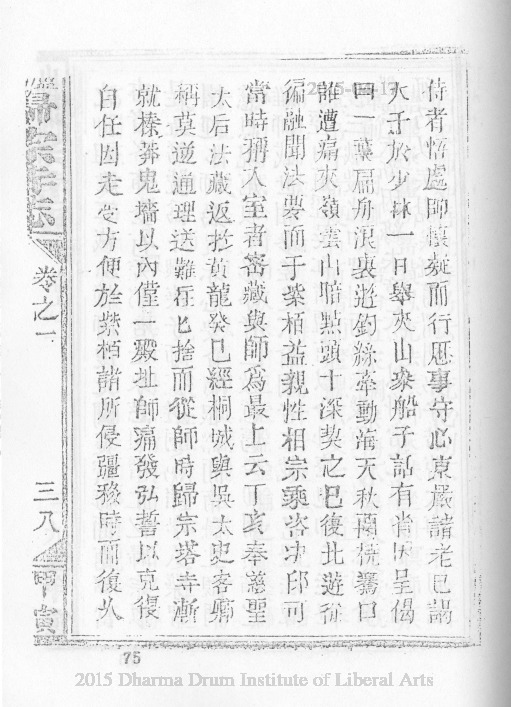 侍者悟處師懷疑而行思事守心東嚴諸老已謁
大千於少林一日舉夾山叅船子話有省因呈偈
曰一葉扁舟浪裏遊釣絲牽動海天秋蘭橈驀口
誰遭痛夾嶺雲山暗點頭十深契之巳復北遊徑
徧融聞法要而于紫栢益親性相宗乘咨决印可
當時稱入室者密藏與師爲最上云丁亥奉慈聖
太后法藏返於黃龍癸巳經桐城與吳太史客卿
稱莫逆通理送難在匕捨而從師時歸宗塔寺漸
就榛莽鬼墻以內僅一殿址師痛發弘誓以克復
自任因走乞方便於紫栢諸所侵疆移時而復火
歸宗寺志
卷之一
三八
甲寅
75
2015 Dharma Drum Institute of Liberal Arts